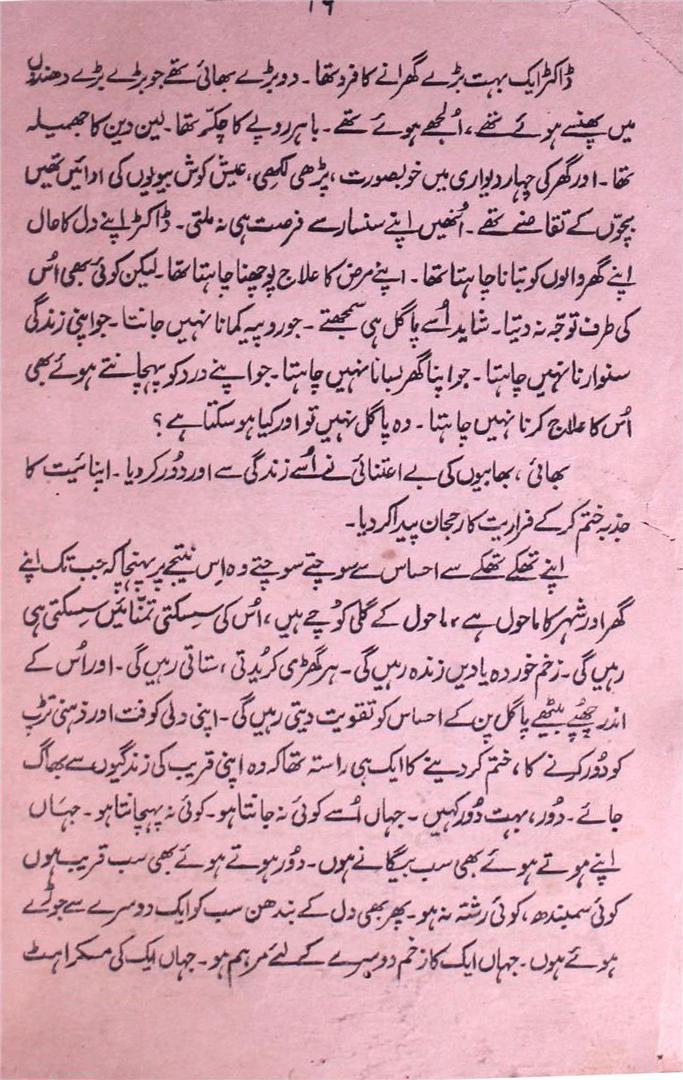 ۱۶
ڈاکٹر ایک بہت بڑے گھرانے کا فرد تھا۔ دو بڑے بھائی تھے جو بڑے بڑے دھندوں
میں پھنسے ہوئے تھے، اُلجھے ہوئے تھے۔ باہر روپے کا چکّر تھا۔ لین دین کا جھمیلہ
تھا۔ اور گھر کی چہار دیواری میں خوبصورت، پڑھی لکھی، عیش کوش بیویوں کی ادائیں تھیں
بچوّں کے تقاضے تھے۔ اُنھیں اپنے سنسار سے فرصت ہی نہ ملتی۔ ڈاکٹر اپنے دل کا حال
اپنے گھر والوں کو بتانا چاہتا تھا۔ اپنے مرض کا علاج پوچھنا چاہتا تھا۔ لیکن کوئی بھی اُس
کی طرف توجّہ نہ دیتا۔ شاید اُسے پاگل ہی سمجھتے۔ جو روپیہ کمانا نہیں جانتا۔ جو اپنی زندگی
سنوارنا نہیں چاہتا۔ جو اپنا گھر بسانا نہیں چاہتا۔ جو اپنے درد کو پہچانتے ہوئے بھی
اُس کا علاج کرنا نہیں چاہتا۔ وہ پاگل نہیں تو اور کیا ہو سکتا ہے؟
بھائی، بھابیوں کی بے اعتنائی نے اُسے زندگی سے اور دُور کر دیا۔ اپنائیت کا
جذبہ ختم کر کے فراریت کا رجحان پیدا کر دیا۔
اپنے تھکے تھکے سے احساس سے سوچتے سوچتے وہ اِس نتیجے پر پہنچا کہ جب تک اپنے
گھر اور شہر کا ماحول ہے، ماحول کے گلی کوچے ہیں، اُس کی سِسکتی تمنّائیں سِسکتی ہی
رہیں گی۔ زخم خوردہ یادیں زندہ رہیں گی۔ ہر گھڑی کُریدتی، ستاتی رہیں گی۔ اور اُس کے
اندر چھُپے بیٹھے پاگل پن کے احساس کو تقویت دیتی رہیں گی۔ اپنی دلی کوفت اور ذہنی تڑپ
کو دُور کرنے کا، ختم کر دینے کا ایک ہی راستہ تھا کہ وہ اپنی قریب کی زندگیوں سے بھاگ
جائے۔ دُور، بہت دُور کہیں۔ جہاں اُسے کوئی نہ جانتا ہو۔ کوئی نہ پہچانتا ہو۔ جہاں
اپنے ہوتے ہوئے بھی سب بیگانے ہوں۔ دُور ہوتے ہوئے بھی سب قریب ہوں
کوئی سمبندھ، کوئی رشتہ نہ ہو۔ پھر بھی دل کے بندھن سب کو ایک دوسرے سے جوڑے
ہوئے ہوں۔ جہاں ایک کا زخم دوسرے کے لئے مرہم ہو۔ جہاں ایک کی مسکراہٹ